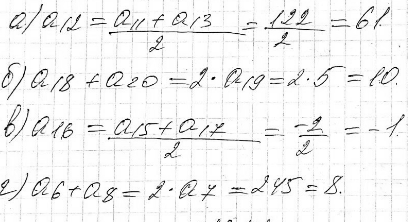 а) a12 = (a11 + a13)/2 = 122/2 = 61
б) a18 + a20 = 2 · a19 = 2 · 5 = 10.
в) a16 = (a15 + a17)/2 = -2/2 = -1
г) a6 + a8 = 2 · a7 = 245 = 8.